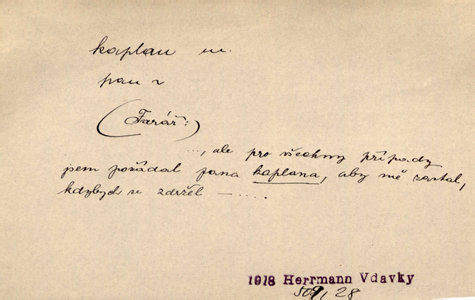 kaplan m.
pan 2
(Farář:)
..., ale pro všechny případy
jsem požádal pana kaplana, aby mě zastal,
kdybych se zdržel – ....
1918 Herrmann Vdavky
509, 28